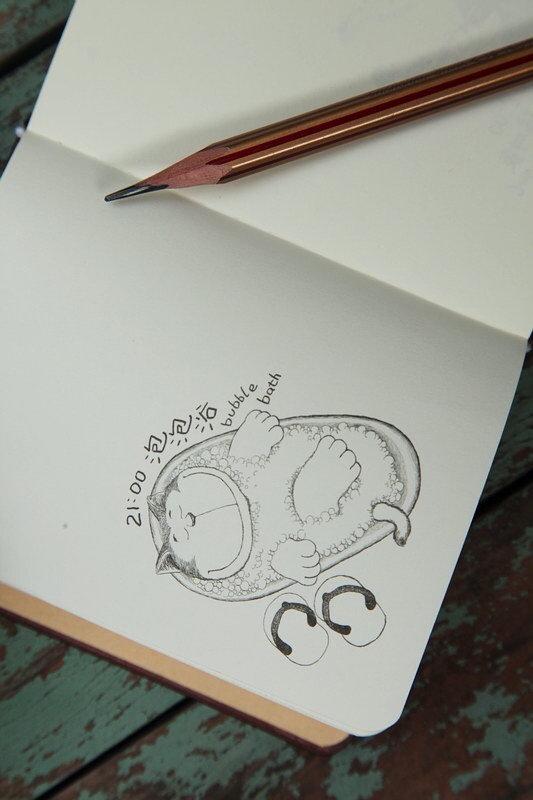 21:00 泡泡浴 bubble
bath